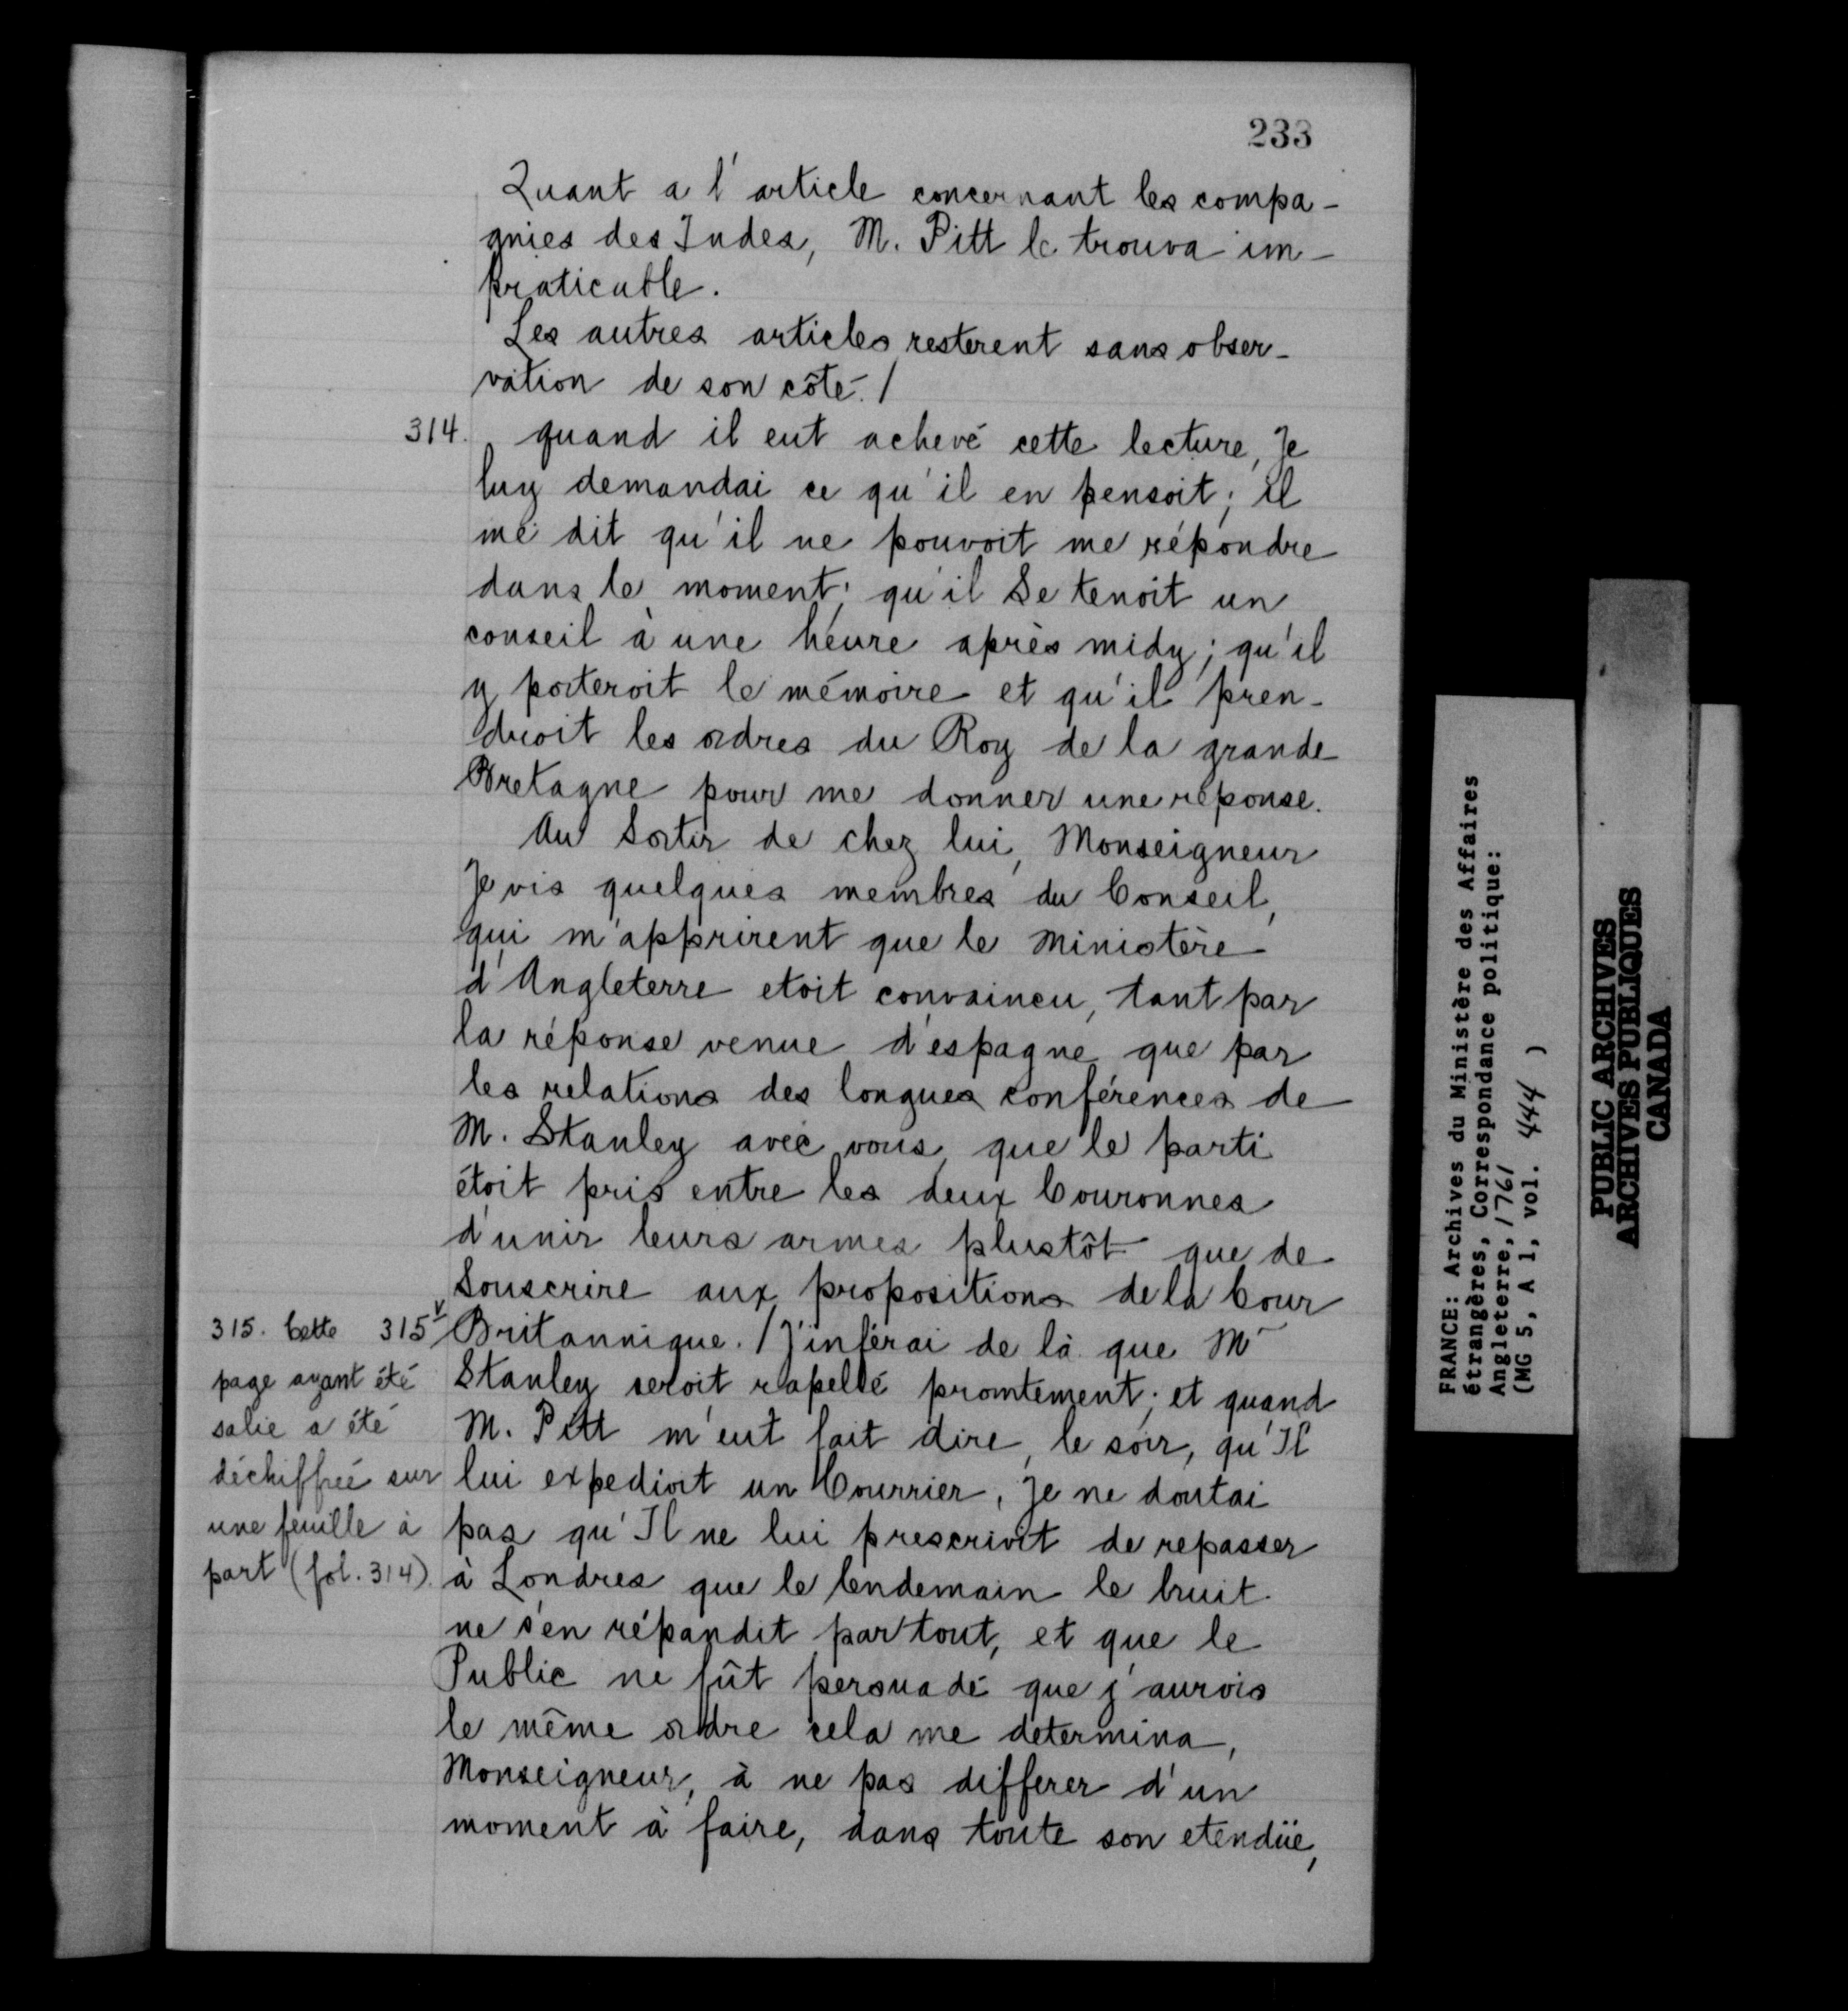 233
Quant a l'article concernant les compa-
gnies des Indes, M. Pitt le trouva im-
praticable.
Les autres articles resterent sans obser-
vation de son côté. /
314. quand il eut achevé cette lecture, Je
luy demandai ce qu'il en pensoit; il
me dit qu'il ne pouvoit me répondre
dans le moment; qu'il Se tenoit un
conseil à une heure après midy; qu'il
y porteroit le mémoire et qu'il pren-
droit les ordres du Roy de la grande
Bretagne pour me donner une réponse.
Au Sortir de chez lui, Monseigneur
Je vis quelques membres du Conseil,
qui m'apprirent que le Ministère
d'Angleterre etoit convaincu, tant par
la réponse venue d'espagne que par
les relations des longues conférences de
M. Stanley avec vous, que le parti
étoit pris entre les deux Couronnes
d'unir leurs armes plustôt que de
Souscrire aux propositions de la Cour
315v Britannique. / J'inférai de là que Mr
Stanley seroit rapellé promtement; et quand
M. Pitt m'eut fait dire, le soir, qu'Il
lui expedioit un Courrier, Je ne doutai
pas qu'Il ne lui prescrivit de repasser
à Londres que le lendemain le bruit
ne s'en répandit par tout, et que le
Public ne fût persuadé que j'aurois
le même ordre cela me determina,
Monseigneur, à ne pas differer d'un
moment à faire, dans toute son etendüe,
315. Cette
page ayant été
salie a été
déchiffrée sur
une feuille à
part (fol. 314).
FRANCE: Archives du Ministère des Affaires
étrangères, Correspondance politique:
Angleterre, 1761
(MG 5, A 1, vol. 444 )
PUBLIC ARCHIVES
ARCHIVES PUBLIQUES
CANADA